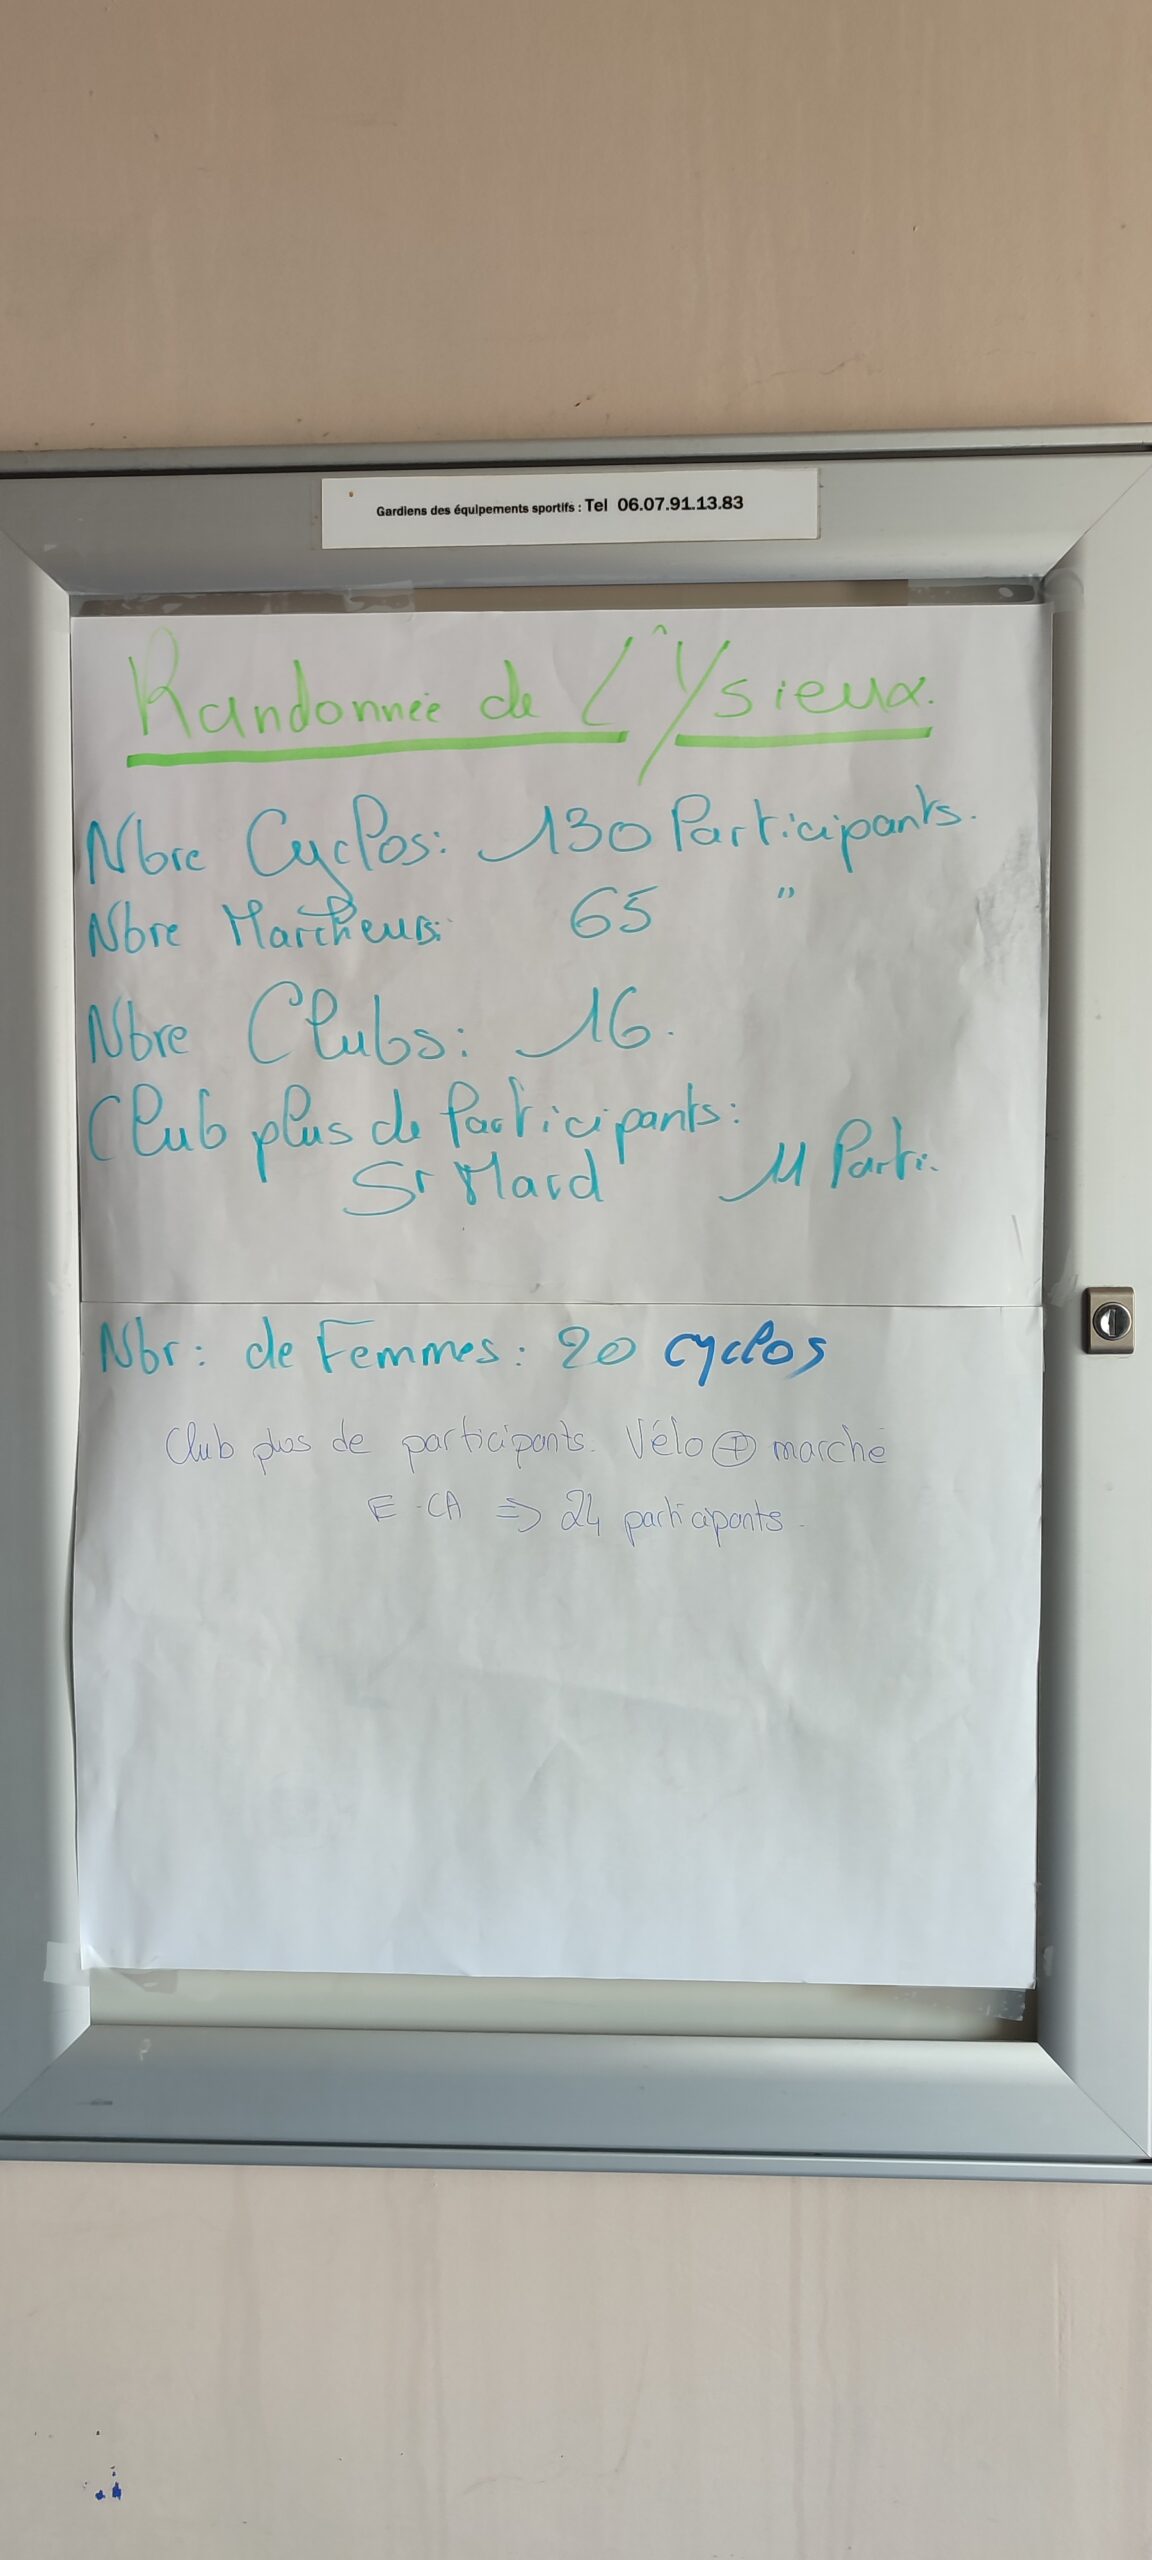 Gardiens des équipements sportifs : Tel 06.07.91.13.83
Randonnée de L'Ysieux.
Nbre Cyclos: 130 Participants.
Nbre Marcheurs: 65 "
Nbre Clubs: 16.
Club plus de Participants:
St Mard 11 Parti.
Nbr: de Femmes: 20 cyclos
Club plus de participants. Vélo + marche
E CA => 24 participants.